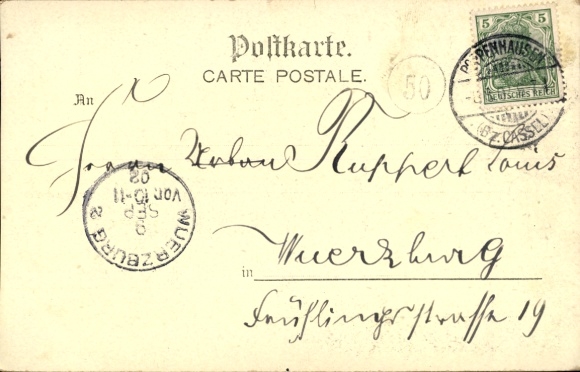 Postkarte.
CARTE POSTALE.
50
5 5
DEUTSCHES REICH
POPPENHAUSEN
(BZ. CASSEL)
An
Herrn Urban Ruppert Louis
WUERZBURG 2
9
SEP
VOR. 10-11
02
in Wuerzburg
Frühlingsstrasse 19